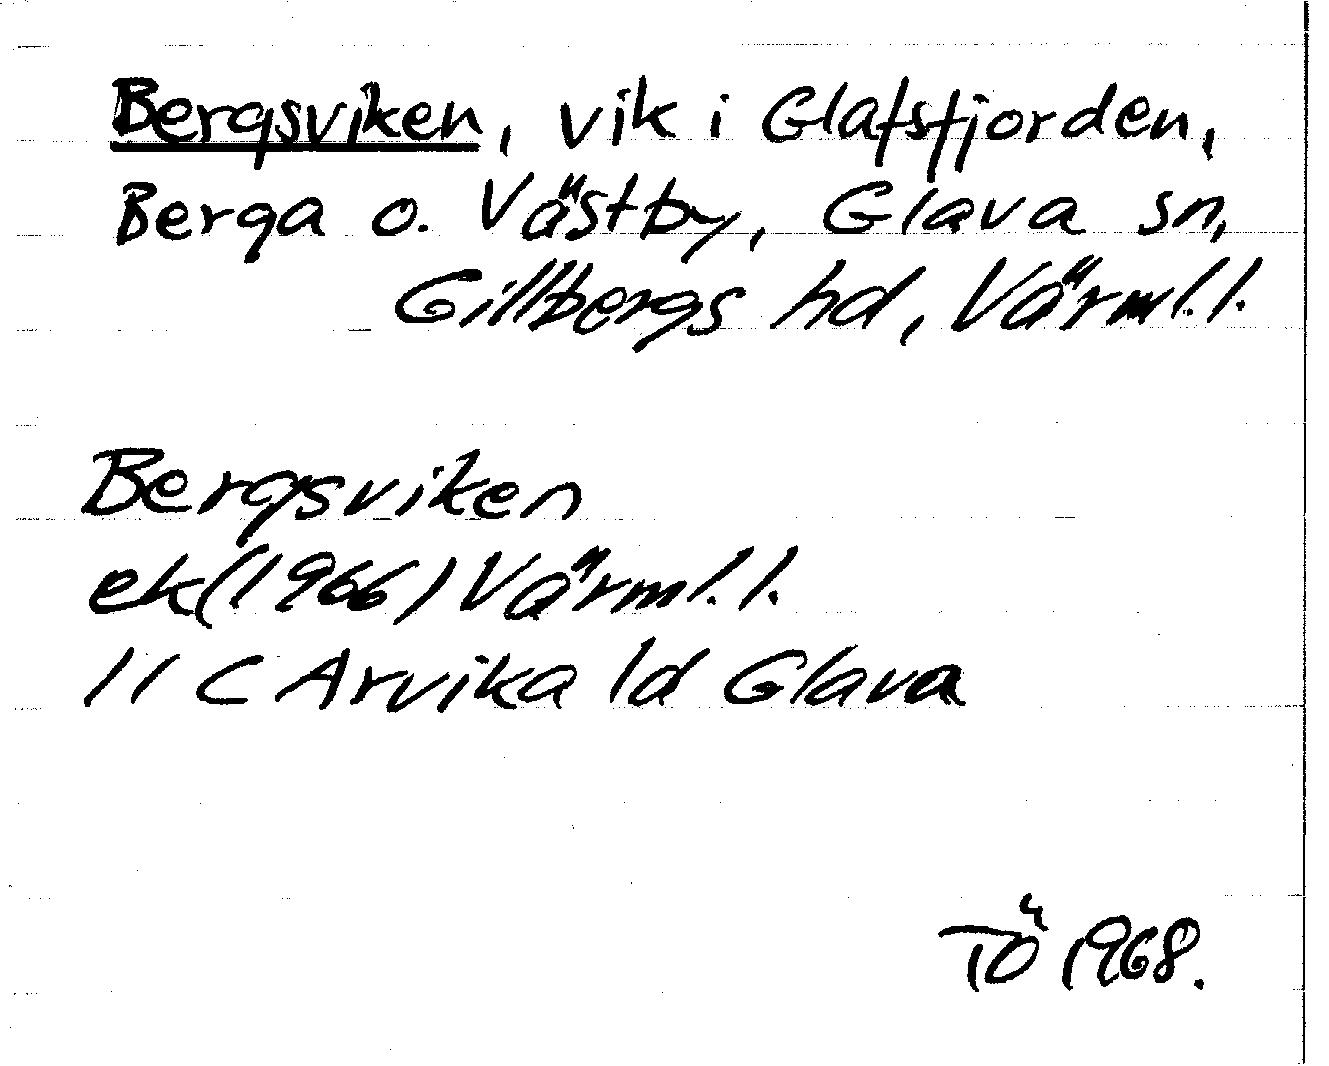 Bergsviken, vik i Glafsfjorden,
Berga o. Västby, Glava sn,
Gillbergs hd, Värml.l.
Bergsviken
ek(1966) Värml.l.
11 C Arvika 1d Glava
TÖ 1968.